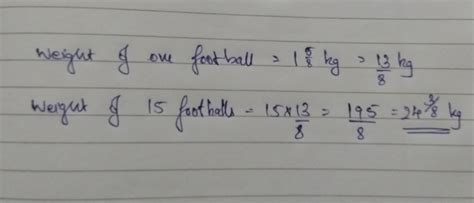 Weight of one football = 1 5/8 kg = 13/8 kg
Weight of 15 footballs = 15 × 13/8 = 195/8 = 24 3/8 kg